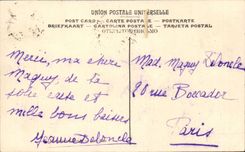 UNION POSTALE UNIVERSELLE
POST CARD — CARTE POSTALE — POSTKARTE
BRIEFKAART — CARTOLINA POSTALE — TARJETA POSTAL
Merci, ma chère
Maguy de ta
jolie carte et
mille bons baisers
Jeanne Delancle
Mad. Maguy Delancle
20 rue Boccador
Paris